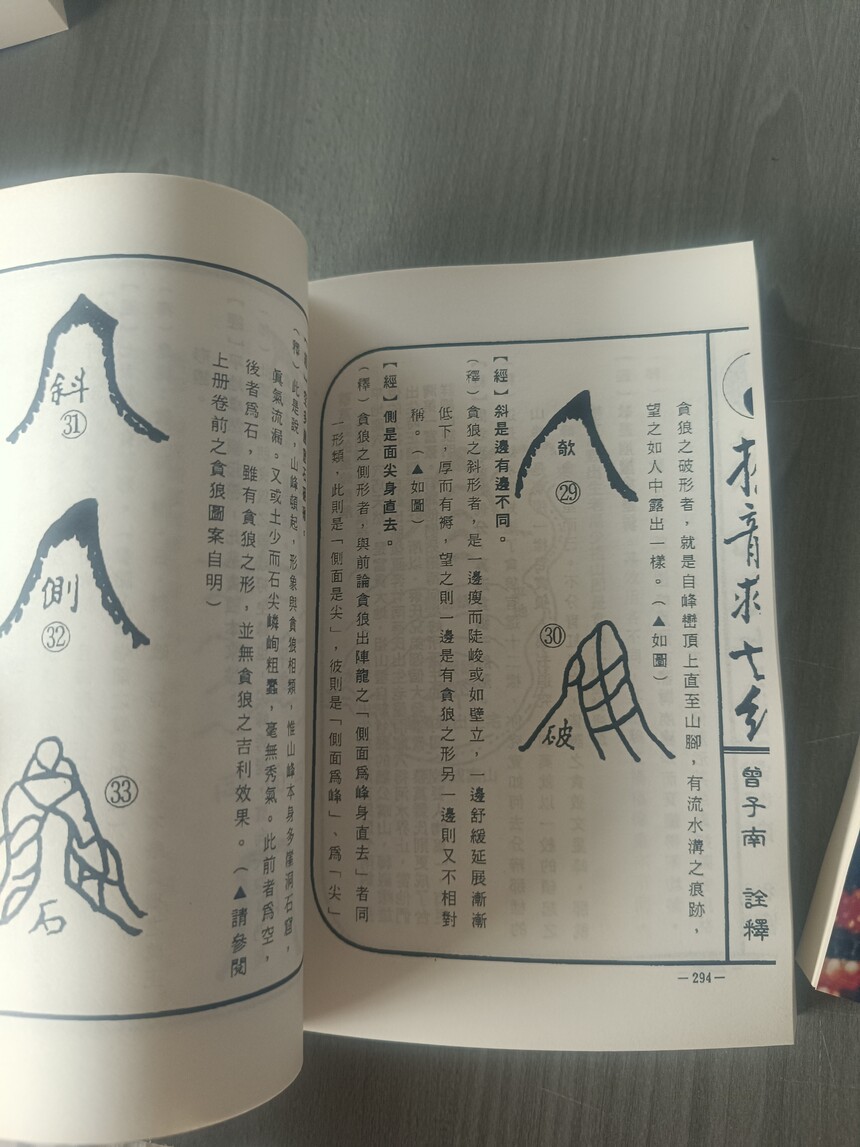 曾子南　詮釋
貪狼之破形者，就是自峰巒頂上直至山腳，有流水溝之痕跡，
望之如人中露出一樣。（▲如圖）
欹
㉙
㉚
破
【經】斜是邊有邊不同。
（釋）貪狼之斜形者，是一邊瘦而陡峻或如壁立，一邊舒緩延展漸漸
低下，厚而有褥，望之則一邊是有貪狼之形另一邊則又不相對
稱。（▲如圖）
【經】側是面尖身直去。
（釋）貪狼之側形者，與前論貪狼出陣龍之「側面為峰身直去」者同
一形類，此則是「側面是尖」，彼則是「側面為峰」、為「尖」
—294—
（釋）此是說，山峰頓起，形象與貪狼相類，惟山峰本身多巖洞石窟，
真氣流漏。又或土少而石尖嶙峋粗蠢，毫無秀氣。此前者為空，
後者為石，雖有貪狼之形，並無貪狼之吉利效果。（▲請參閱
上册卷前之貪狼圖案自明）
斜
㉛
側
㉜
㉝
石